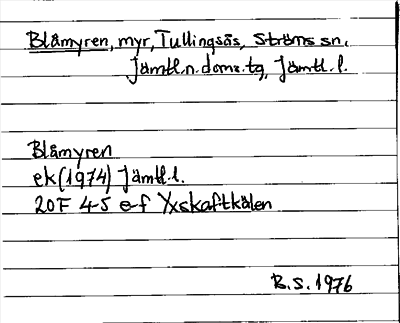 Blåmyren, myr, Tullingsås, Ströms sn,
Jämtl.n.doms.tg, Jämtl.l.
Blåmyren
ek (1974) Jämtl.l.
20F 4-5 e-f Yxskaftkälen
R.S. 1976